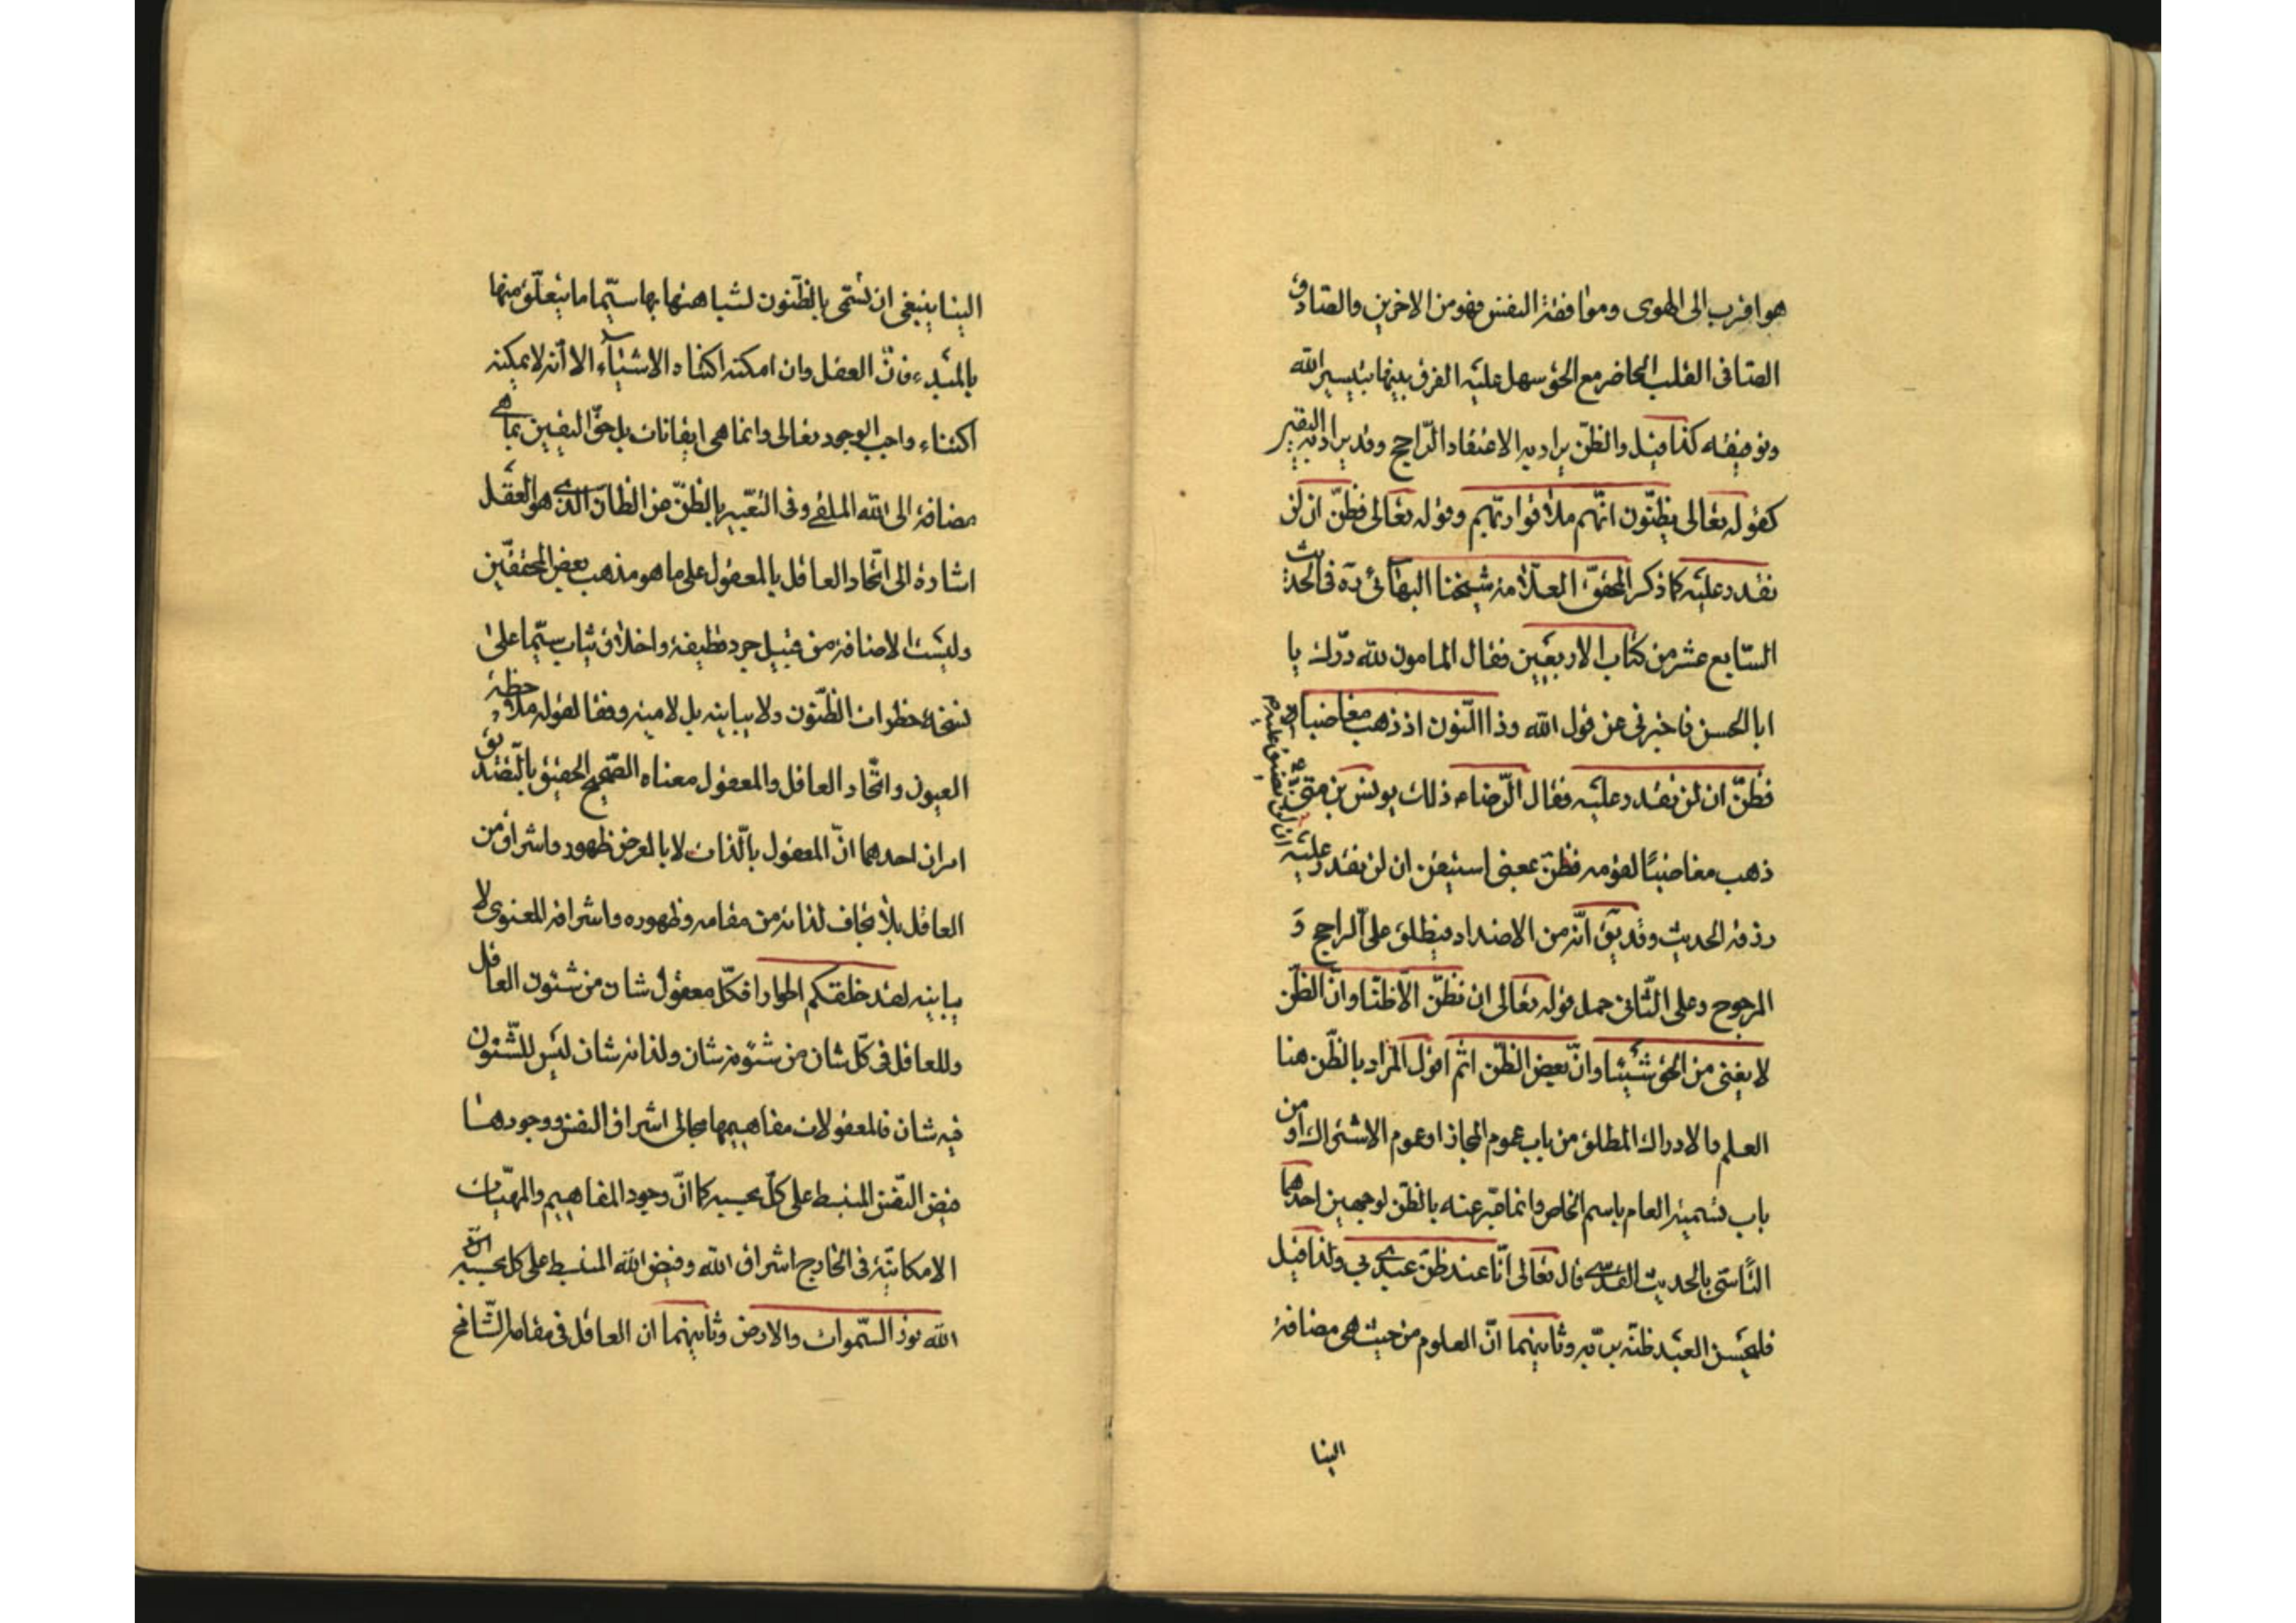 هو اقرب الى الهوى وموافقة النفس فهو من الاخرين والصادق
الصافى القلب الحاضر مع الحق سهل عليه الفرق بينها بتيسير الله
وتوفيقه كذا قيل والظنّ يراد به الاعتقاد الرّاجح وقد يراد به اليقين
كقوله تعالى يظنّون انّهم ملاقوا ربّهم وقوله تعالى فظنّ ان لن
نقدر عليه كما ذكر المحقق العلّامة شيخنا البهائى ره فى الحديث
السّابع عشر من كتاب الاربعين فقال المامون لله درّك يا
ابا الحسن فاخبرنى عن قول الله وذا النّون اذ ذهب مغاضبا
فظنّ ان لن نقدر عليه فقال الرّضاء ذلك يونس بن متىّ
ذهب مغاضبًا لقومه فظنّ بمعنى استيقن ان لن نقدر عليه
اى لن نضيق عليه
رزقه الحديث وقد يق انّه من الاضداد فيطلق على الراجح و
المرجوح وعلى الثّانى حمل قوله تعالى ان نظنّ الّا ظنّا وانّ الظنّ
لا يغنى من الحق شيئا وانّ بعض الظنّ اثم اقول المراد بالظّن هنا
العلم والادراك المطلق من باب عموم المجاز او عموم الاشتراك او من
باب تسمية العام باسم الخاص وانما عبّر عنه بالظن لوجهين احدهما
التّأسّى بالحديث القدسى قال تعالى انّا عند ظنّ عبدى بى ولذا قيل
فليحسن العبد ظنّه بربّه وثانيهما انّ العلوم من حيث هى مضافة
الينا
الينا ينبغى ان تسمّى بالظّنون لشباهتها بها سيّما ما يتعلّق منها
بالمبدء فانّ العقل وان امكنه اكتناه الاشياء الا انّه لا يمكنه
اكتناء واجب الوجود تعالى وانما هى ايقانات بل حقّ اليقين بما هى
مضافة الى الله الملقى وفى التعبير بالظنّ من الظانّ الذى هو العقل
اشارة الى اتّحاد العاقل بالمعقول على ما هو مذهب بعض المحققّين
وليست الاضافة من قبيل جرد قطيفة واخلاق ثياب سيّما على
نسخة خطرات الظّنون ولا بيانية بل لامية وفقا لقوله ملاحظة
العيون واتّحاد العاقل والمعقول معناه الصّحيح الحقيق بالتّصديق
امران احدهما انّ المعقول بالّذات لا بالعرض ظهور واشراق من
العاقل بلا تجاف لذاته من مقامه وظهوره واشراقه المعنوى لا
يباينه لقد خلقكم اطوارا فكلّ معقول شان من شئون العاقل
وللعاقل فى كلّ شان من شئونه شان ولذاته شان ليس للشّئون
فيه شان فالمعقولات مفاهيمها مجالى اشراق النفس ووجودها
فيض النّفس المنبسط على كلّ بحسبه كما انّ وجود المفاهيم والمهيّات
الامكانيّة فى الخارج اشراق الله وفيض الله المنبسط على كل بحسبه
الله نور السّموات والارض وثانيهما ان العاقل فى مقامه الشّامخ